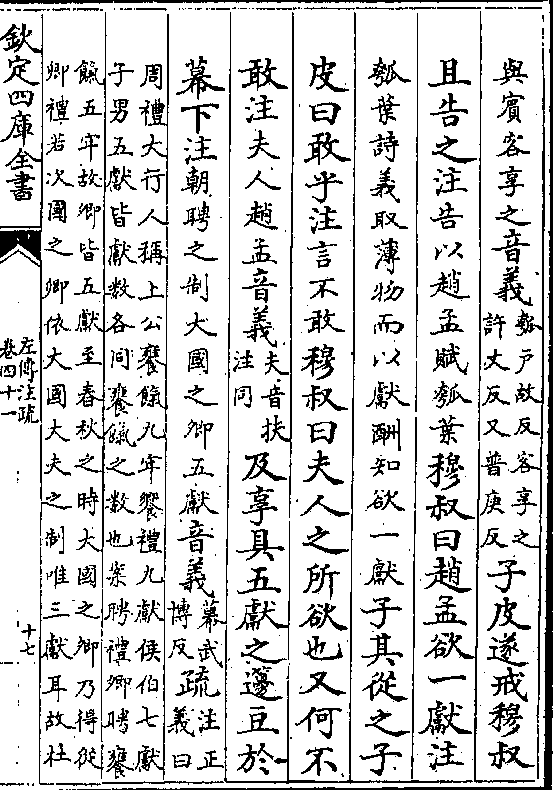 與賓客享之音義瓠戸故反客享之許丈反又普庚反子皮遂戒穆叔
且告之注告以趙孟賦瓠葉穆叔曰趙孟欲一獻注
瓠葉詩義取薄物而以獻酬知欲一獻子其從之子
皮曰敢乎注言不敢穆叔曰夫人之所欲也又何不
敢注夫人趙孟音義夫音扶注同及享具五獻之邊豆於
幕下注朝聘之制大國之卿五獻音義幕武博反疏注正義曰
周禮大行人稱上公饔餼九牢饗禮九獻侯伯七獻
子男五獻皆獻數各同饔餼之數也案聘禮卿聘饔
餼五牢故卿皆五獻至春秋之時大國之卿乃得從
卿禮若次國之卿依大國大夫之制唯三獻耳故杜
欽定四庫全書
左傳注疏
卷四十一
十七